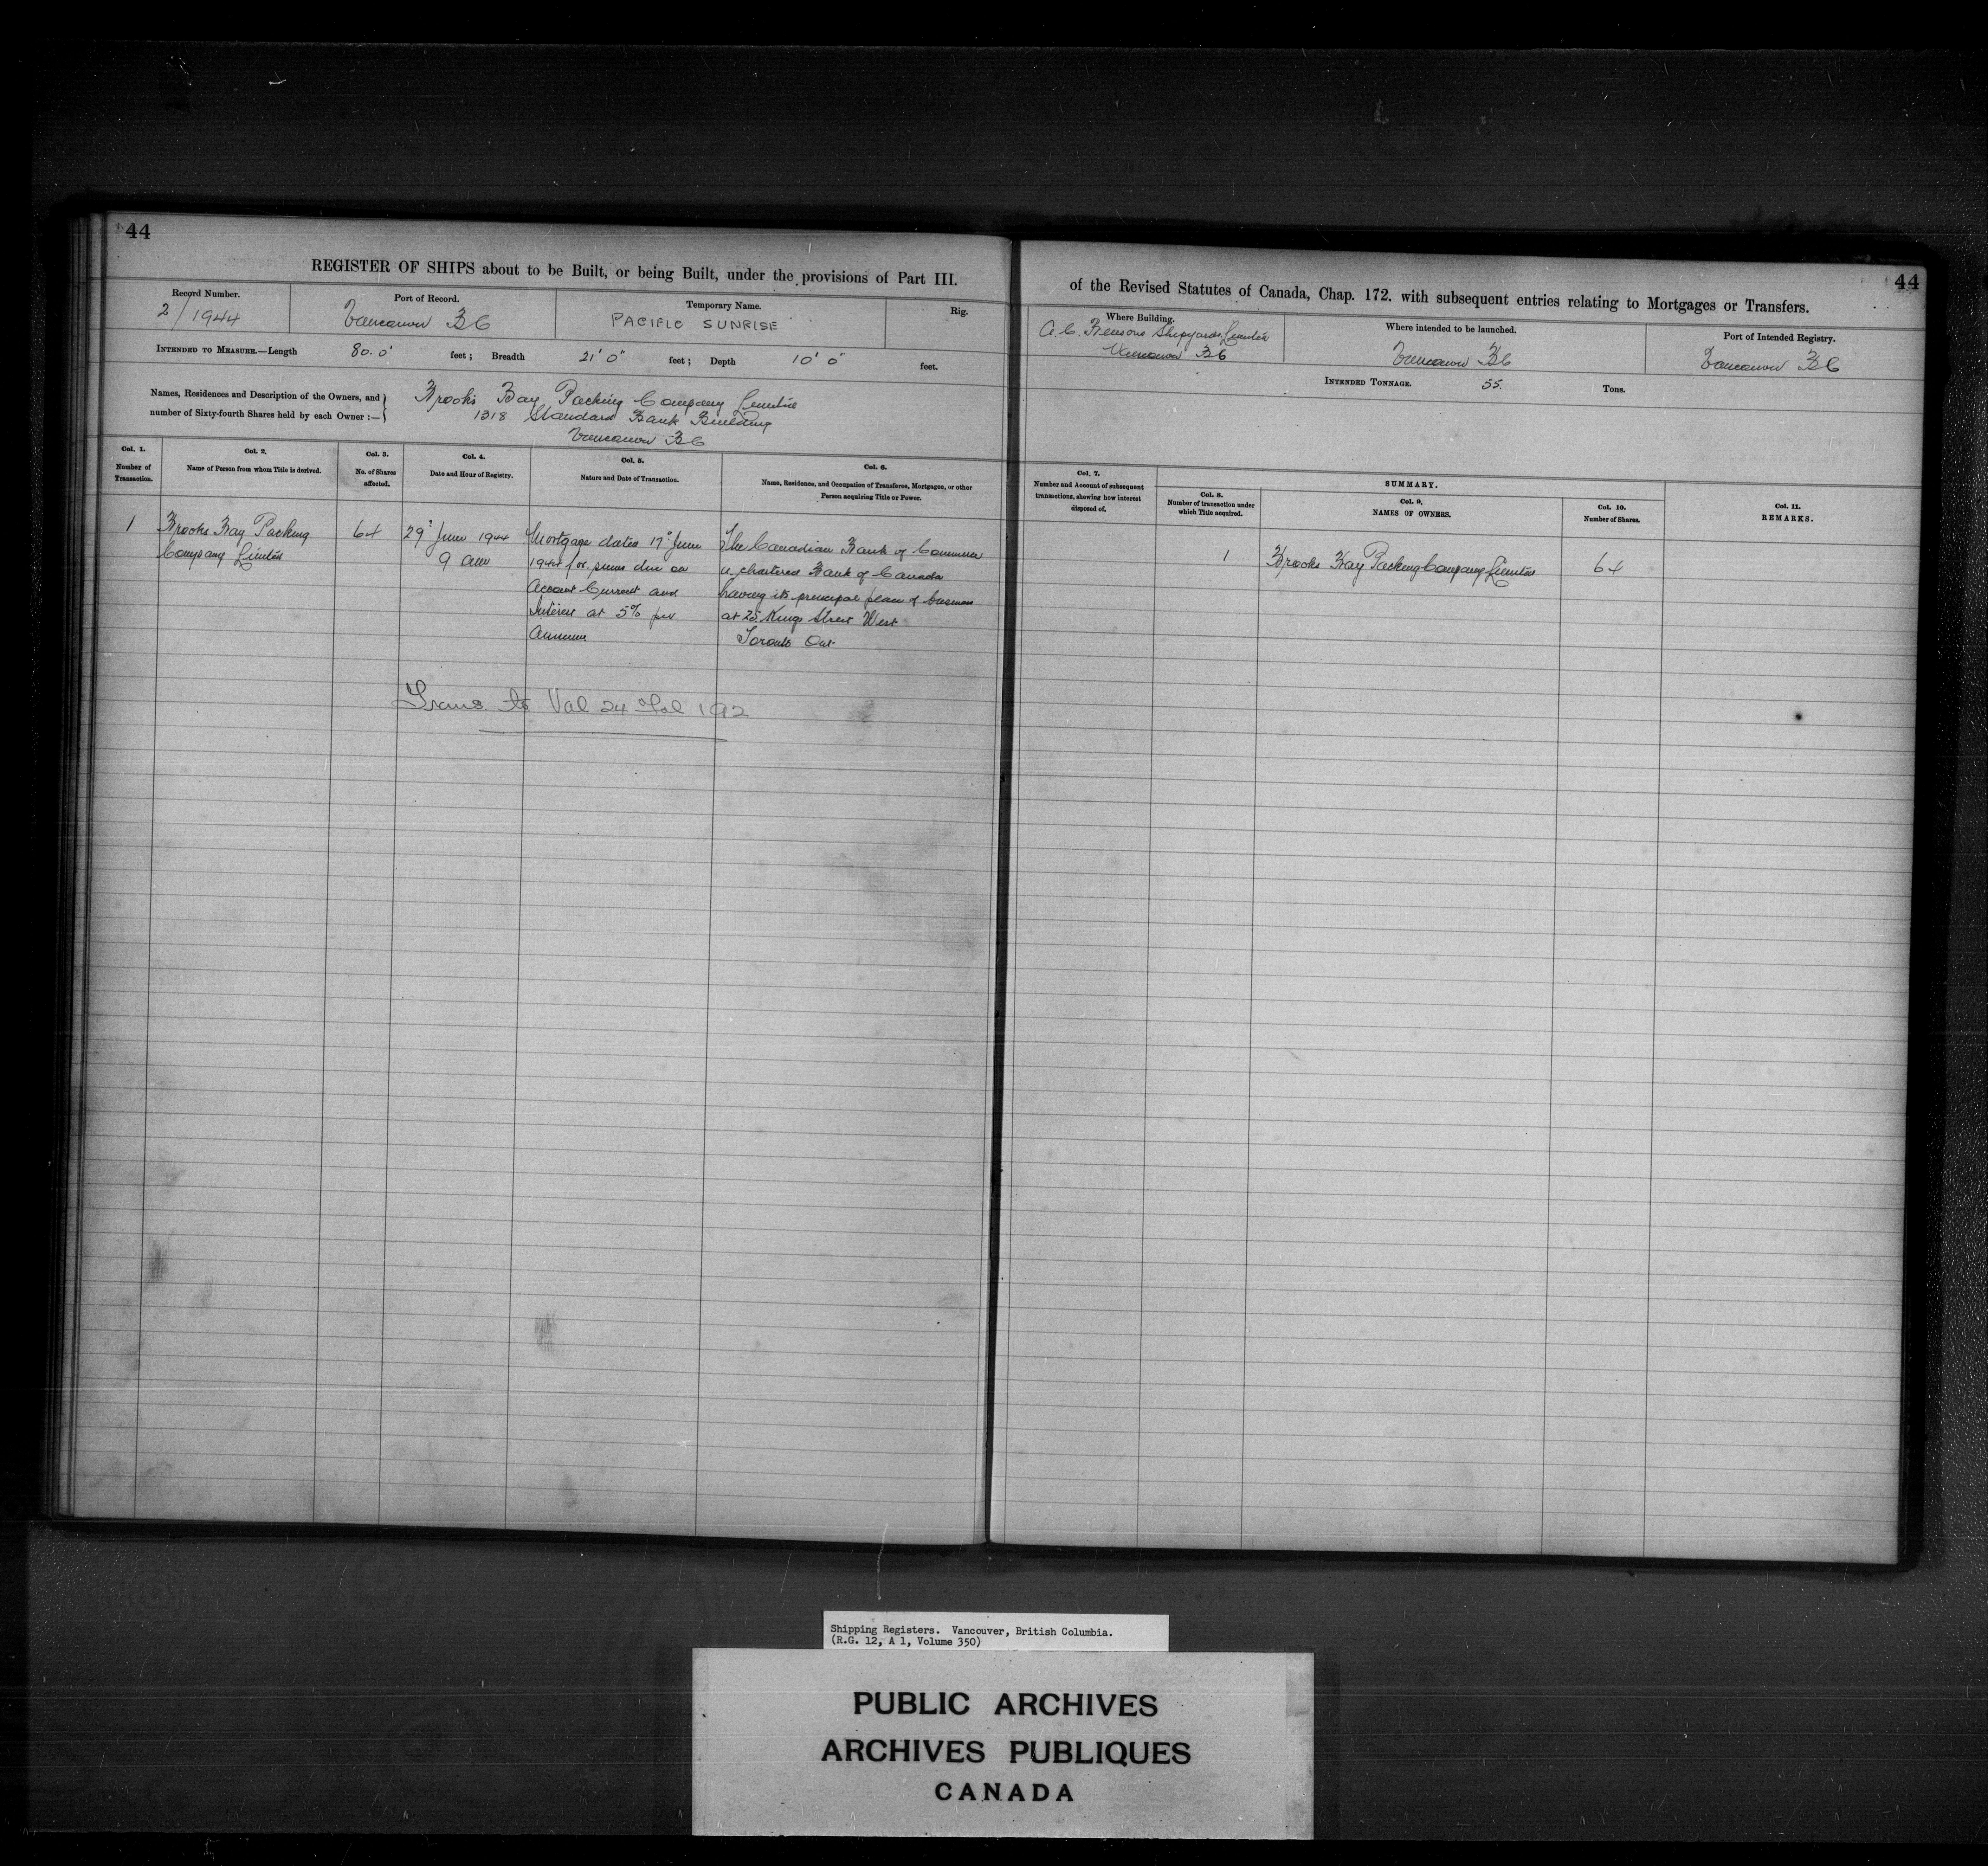 44
REGISTER OF SHIPS about to be Built, or being Built, under the provisions of Part III.
Record Number.
2/1944
Port of Record.
Vancouver BC
Temporary Name.
PACIFIC SUNRISE
Rig.
INTENDED TO MEASURE.—Length 80.0' feet; Breadth 21' 0" feet; Depth 10' 0" feet.
Names, Residences and Description of the Owners, and
number of Sixty-fourth Shares held by each Owner:—
Brooks Bay Packing Company Limited
1318 Standard Bank Building
Vancouver BC
Col. 1.
Number of
Transaction.
Col. 2.
Name of Person from whom Title is derived.
Col. 3.
No. of Shares
affected.
Col. 4.
Date and Hour of Registry.
Col. 5.
Nature and Date of Transaction.
Col. 6.
Name, Residence, and Occupation of Transferee, Mortgagee, or other
Person acquiring Title or Power.
1
Brooks Bay Packing
Company Limited
64
29" June 1944
9 am
Mortgage dated 17" June
1944 for sums due on
Account Current and
Interest at 5% per
Annum
The Canadian Bank of Commerce
a chartered Bank of Canada
having its principal place of business
at 25 Kings Street West
Toronto Ont
Trans. to Vol 24 Fol 192
44
of the Revised Statutes of Canada, Chap. 172. with subsequent entries relating to Mortgages or Transfers.
Where Building.
A.C. Bensons Shipyards Limited
Vancouver BC
Where intended to be launched.
Vancouver BC
Port of Intended Registry.
Vancouver BC
INTENDED TONNAGE. 55. Tons.
Col. 7.
Number and Account of subsequent
transactions, showing how interest
disposed of.
SUMMARY.
Col. 8.
Number of transaction under
which Title acquired.
Col. 9.
NAMES OF OWNERS.
Col. 10.
Number of Shares.
Col. 11.
REMARKS.
1
Brooks Bay Packing Company Limited
64
Shipping Registers. Vancouver, British Columbia.
(R.G. 12, A 1, Volume 350)
PUBLIC ARCHIVES
ARCHIVES PUBLIQUES
CANADA